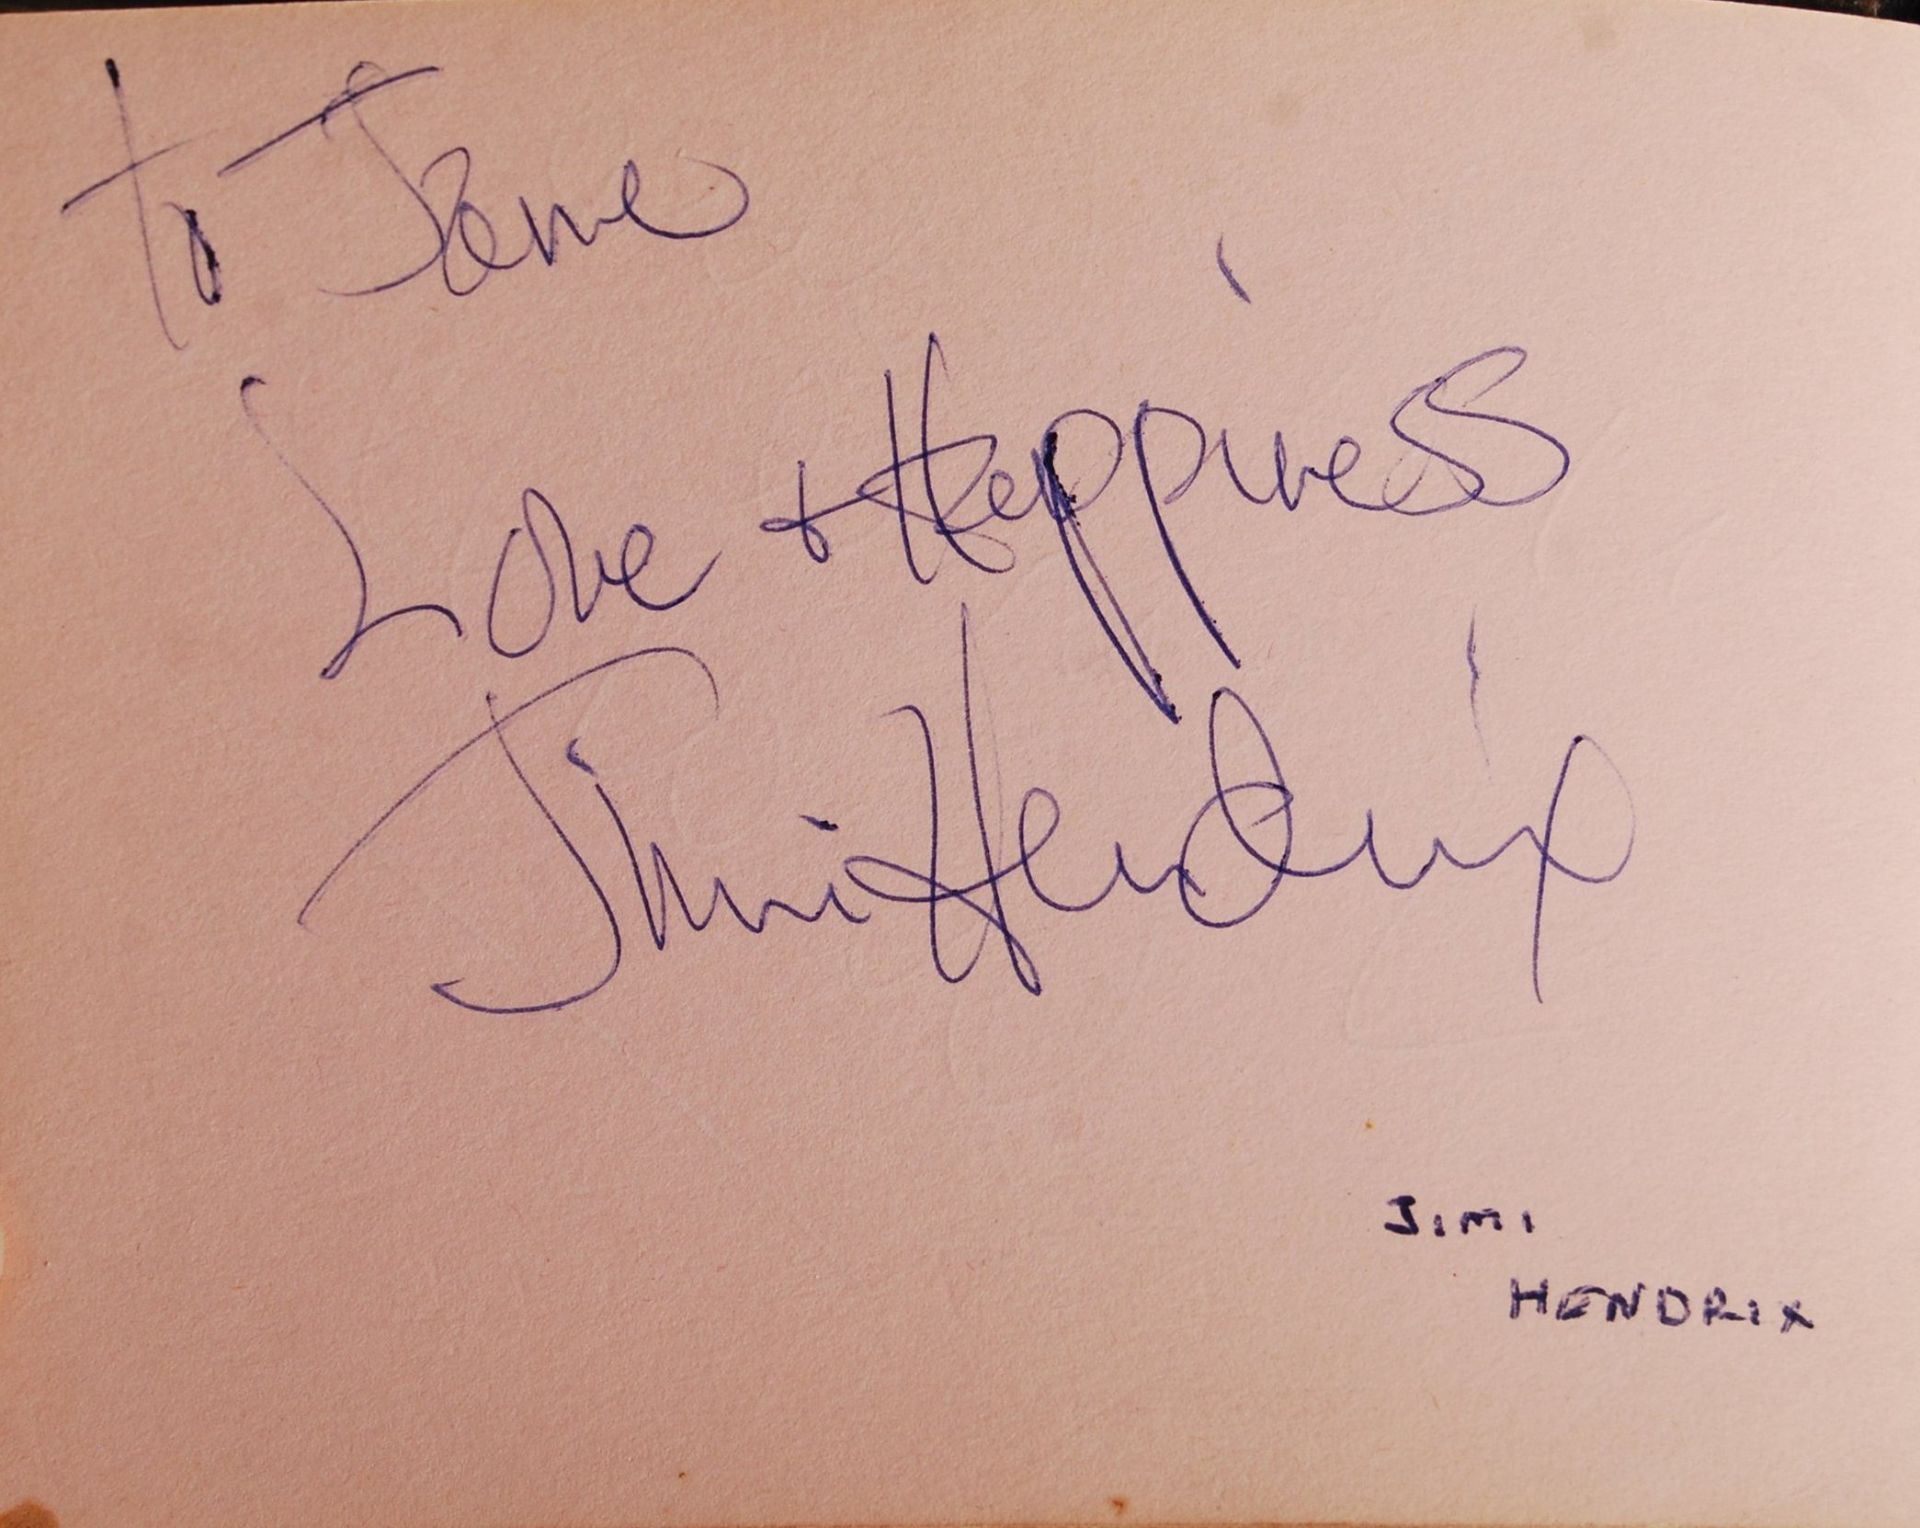 to Jane
Love + Happiness
Jimi Hendrix
JIMI
HENDRIX